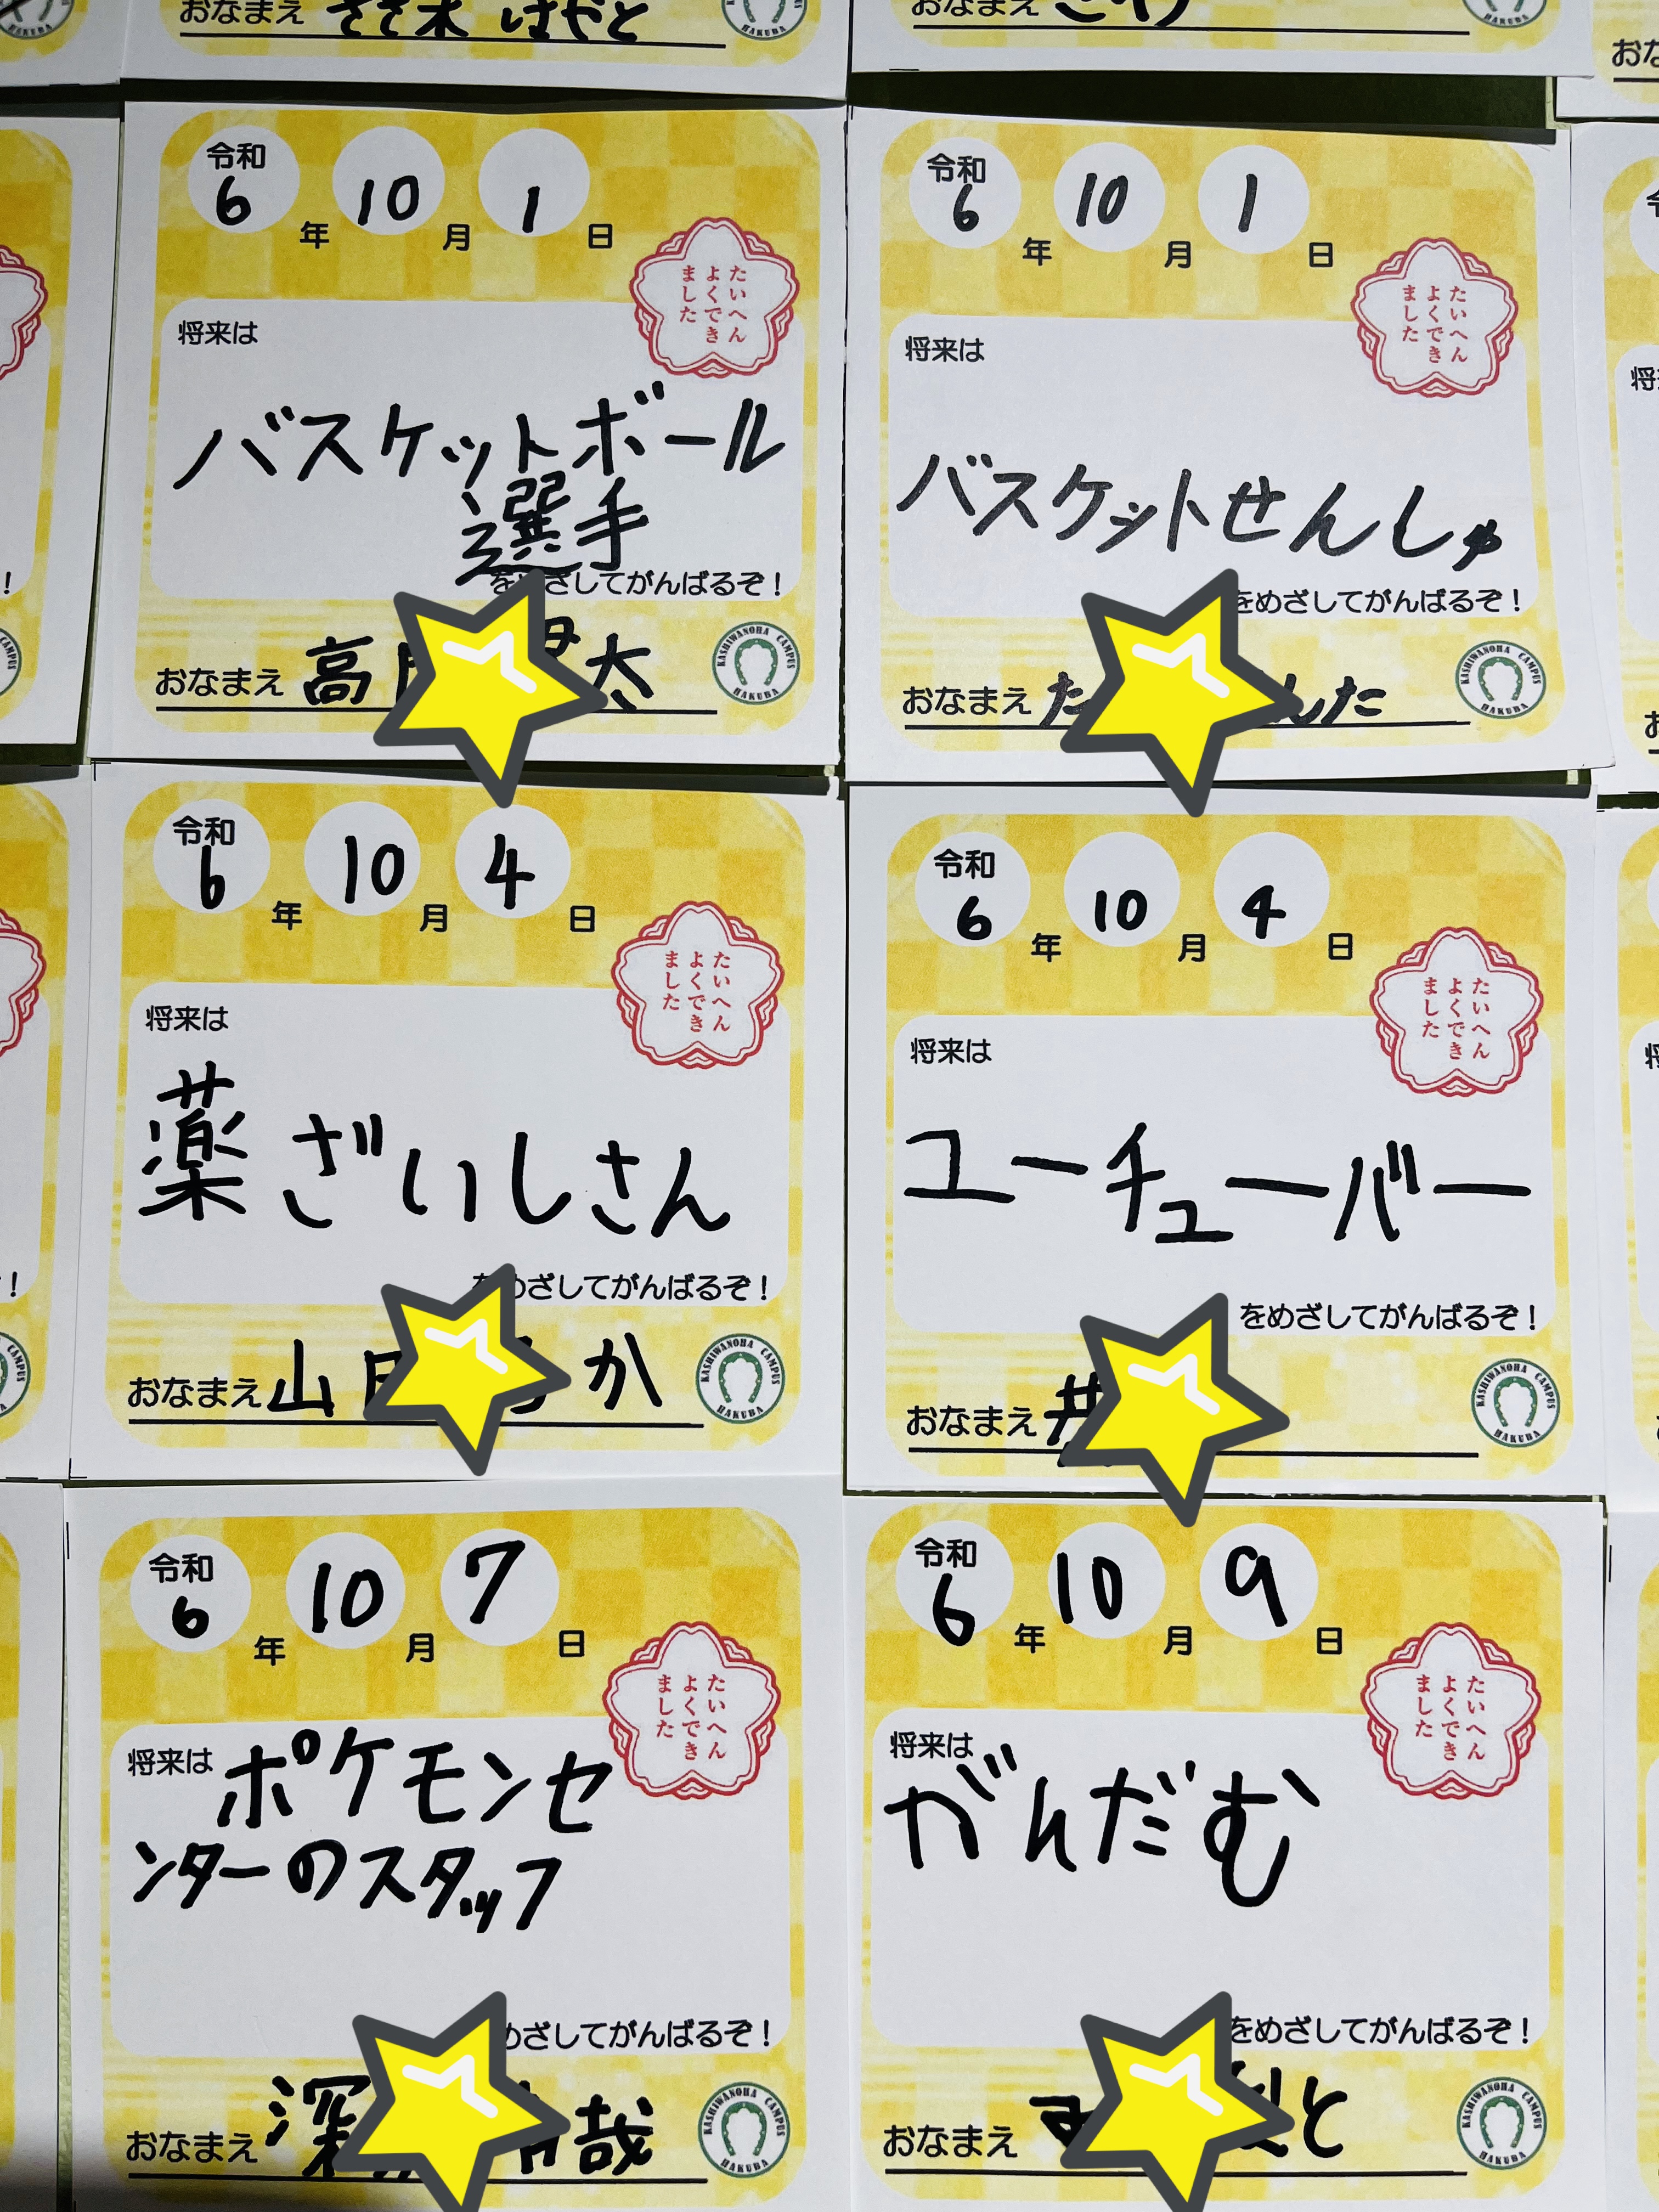 おなまえ ささ木 はやと
おなまえ
令和
6年 10月 1日
たいへん
よくでき
ました
将来は
バスケットボール
選手
をめざしてがんばるぞ！
おなまえ 高 太
KASHIWANOHA CAMPUS HAKUBA
令和
6年 10月 1日
たいへん
よくでき
ました
将来は
バスケットせんしゅ
をめざしてがんばるぞ！
おなまえ た んた
KASHIWANOHA CAMPUS HAKUBA
令和
6年 10月 4日
たいへん
よくでき
ました
将来は
薬ざいしさん
めざしてがんばるぞ！
おなまえ 山 か
KASHIWANOHA CAMPUS HAKUBA
令和
6年 10月 4日
たいへん
よくでき
ました
将来は
ユーチューバー
をめざしてがんばるぞ！
おなまえ 井
KASHIWANOHA CAMPUS HAKUBA
令和
6年 10月 7日
たいへん
よくでき
ました
将来は ポケモンセ
ンターのスタッフ
めざしてがんばるぞ！
おなまえ 深 哉
KASHIWANOHA CAMPUS HAKUBA
令和
6年 10月 9日
たいへん
よくでき
ました
将来は
がんだむ
をめざしてがんばるぞ！
おなまえ と
KASHIWANOHA CAMPUS HAKUBA